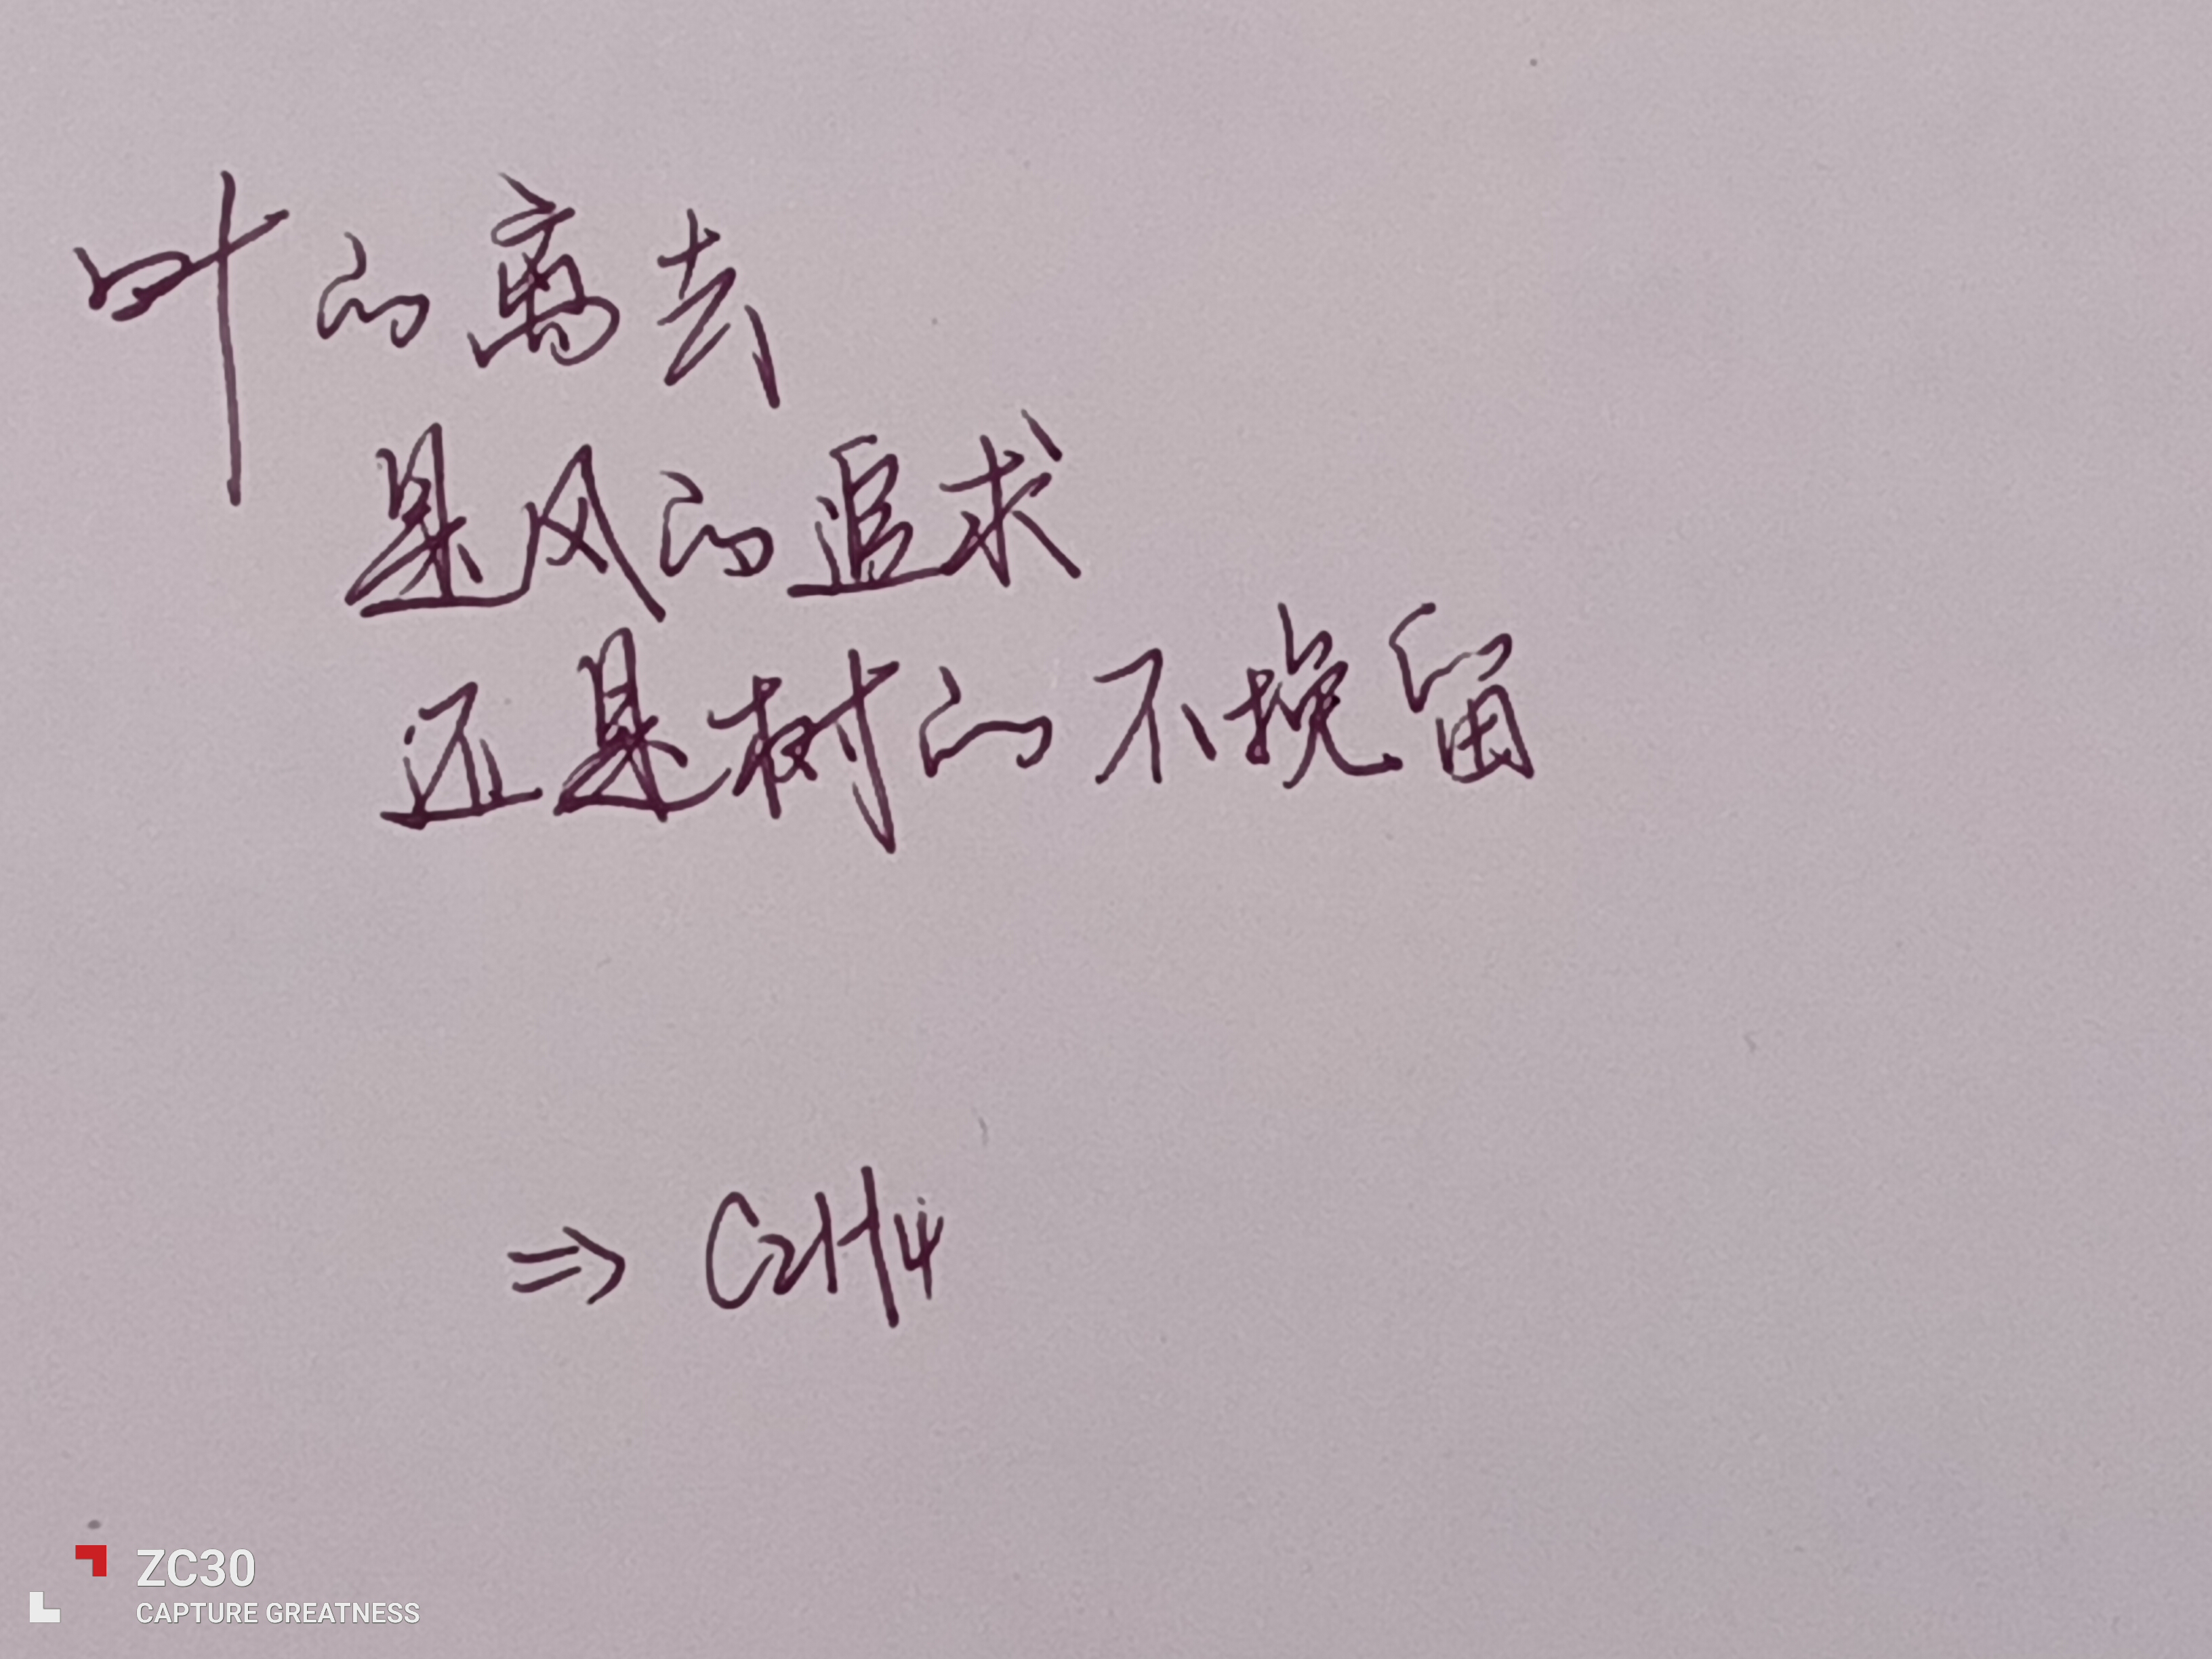 叶的离去
是风的追求
还是树的不挽留
⇒ C2H4
ZC30
CAPTURE GREATNESS